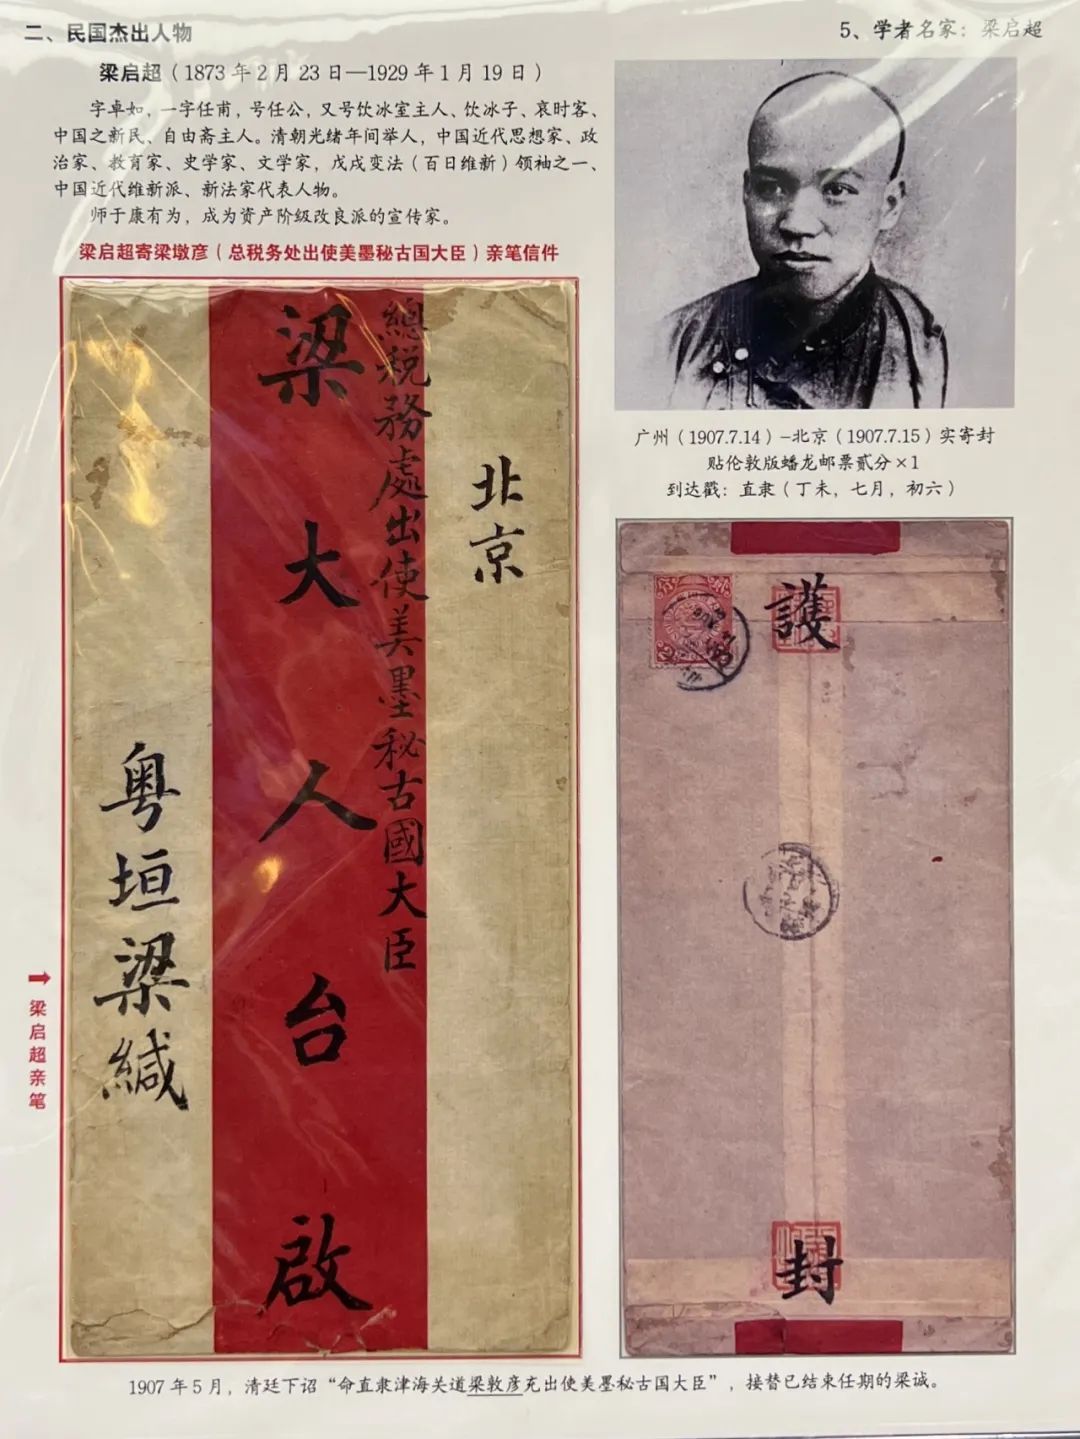 二、民国杰出人物
5、学者名家：梁启超
梁启超（1873年2月23日—1929年1月19日）
字卓如，一字任甫，号任公，又号饮冰室主人、饮冰子、哀时客、
中国之新民、自由斋主人。清朝光绪年间举人，中国近代思想家、政
治家、教育家、史学家、文学家，戊戌变法（百日维新）领袖之一、
中国近代维新派、新法家代表人物。
师于康有为，成为资产阶级改良派的宣传家。
梁启超寄梁墩彦（总税务处出使美墨秘古国大臣）亲笔信件
北京
總税務處出使美墨秘古國大臣
梁大人台啟
粤垣梁緘
梁启超亲笔
广州（1907.7.14）-北京（1907.7.15）实寄封
贴伦敦版蟠龙邮票贰分×1
到达戳：直隶（丁未，七月，初六）
護
封
1907年5月，清廷下诏“命直隶津海关道梁敦彦充出使美墨秘古国大臣”，接替已结束任期的梁诚。